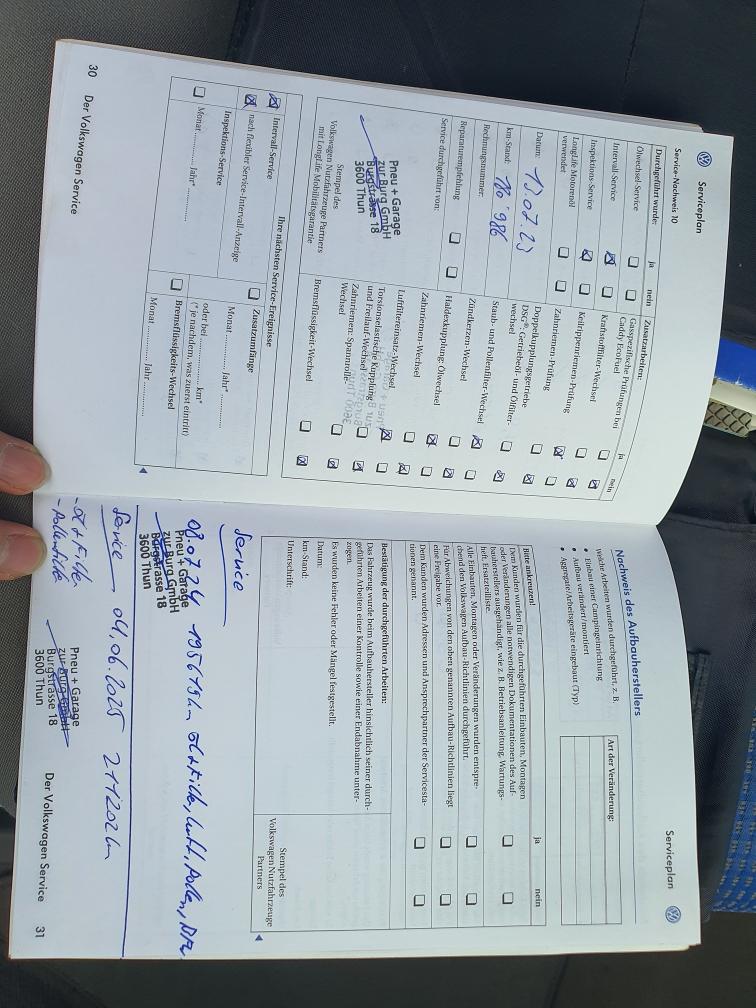 Serviceplan
Service-Nachweis 10
Durchgeführt wurde: ja nein
Ölwechsel-Service
Intervall-Service
Inspektions-Service
LongLife Motorenöl
verwendet
Datum: 13.07.23
km-Stand: 180'986
Rechnungsnummer:
Reparaturempfehlung
Service durchgeführt von:
Pneu + Garage
zur Burg GmbH
Burgstrasse 18
3600 Thun
Stempel des
Volkswagen Nutzfahrzeuge Partners
mit LongLife Mobilitätsgarantie
Zusatzarbeiten: ja nein
Gasspezifische Prüfungen bei
Caddy EcoFuel
Kraftstofffilter-Wechsel
Keilrippenriemen-Prüfung
Zahnriemen-Prüfung
Doppelkupplungsgetriebe
DSG®: Getriebeöl- und Ölfilter-
wechsel
Staub- und Pollenfilter-Wechsel
Zündkerzen-Wechsel
Haldexkupplung-Ölwechsel
Zahnriemen-Wechsel
Luftfiltereinsatz-Wechsel
Torsionselastische Kupplung
und Freilauf-Wechsel
Zahnriemen: Spannrolle-
Wechsel
Bremsflüssigkeit-Wechsel
Ihre nächsten Service-Ereignisse
Intervall-Service
nach flexibler Service-Intervall-Anzeige
Inspektions-Service
Monat ............ Jahr* ............
Zusatzumfänge
Monat ............ Jahr* ............
oder bei ............ km*
(* je nachdem, was zuerst eintritt)
Bremsflüssigkeits-Wechsel
Monat ............ Jahr ............
30 Der Volkswagen Service
Serviceplan
Nachweis des Aufbauherstellers
welche Arbeiten wurden durchgeführt, z. B.
• Einbau einer Campingeinrichtung
• Aufbau verändert/montiert
• Aggregate/Arbeitsgeräte eingebaut (Typ)
Art der Veränderung:
Bitte ankreuzen! ja nein
Dem Kunden wurden für die durchgeführten Einbauten, Montagen
oder Veränderungen alle notwendigen Dokumentationen des Auf-
bauherstellers ausgehändigt, wie z. B. Betriebsanleitung, Wartungs-
heft, Ersatzteilliste.
Alle Einbauten, Montagen oder Veränderungen wurden entspre-
chend den Volkswagen Aufbau-Richtlinien durchgeführt.
Für Abweichungen von den oben genannten Aufbau-Richtlinien liegt
eine Freigabe vor.
Dem Kunden wurden Adressen und Ansprechpartner der Servicesta-
tionen genannt.
Bestätigung der durchgeführten Arbeiten:
Das Fahrzeug wurde beim Aufbauhersteller hinsichtlich seiner durch-
geführten Arbeiten einer Kontrolle sowie einer Endabnahme unter-
zogen.
Es wurden keine Fehler oder Mängel festgestellt.
Datum:
km-Stand:
Unterschrift:
Stempel des
Volkswagen Nutzfahrzeuge
Partners
Service
08.07.24 195679km Öl+Filter, Luft, Pollen,
Pneu + Garage
zur Burg GmbH
Burgstrasse 18
3600 Thun
Service 04.06.2025 211202km
- Öl+Filter
- Pollenfilter
Pneu + Garage
zur Burg GmbH
Burgstrasse 18
3600 Thun
Der Volkswagen Service 31